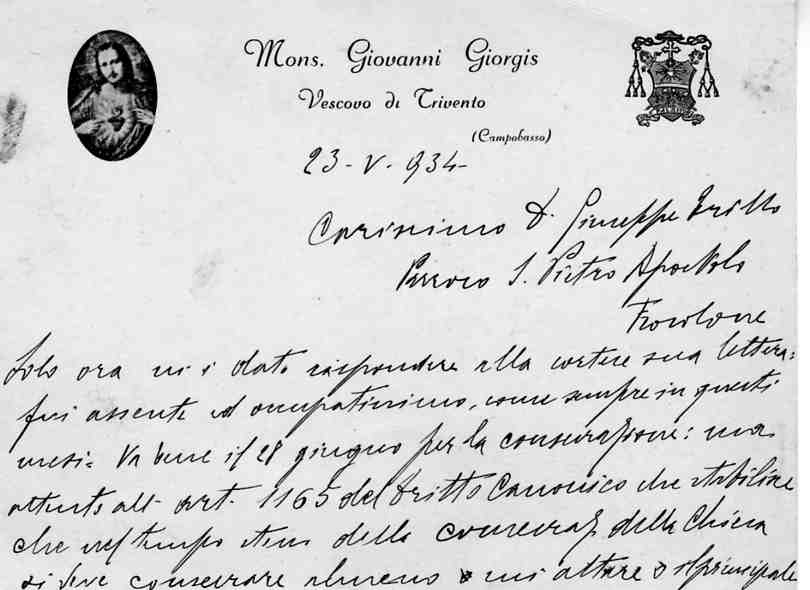 Mons. Giovanni Giorgis
Vescovo di Trivento
(Campobasso)
23-V-934-
Carissimo D. Giuseppe
Parroco S. Pietro Apostolo
Frosolone
Solo ora mi è dato rispondere alla cortese sua lettera:
fui assente ed occupatissimo, come sempre in questi
mesi= Va bene il 28 giugno per la consacrazione: ma
attento all' art. 1165 del Dritto Canonico che stabilisce
che nel tempo stesso della consacraz. della Chiesa
si deve consacrare almeno un altare il principale